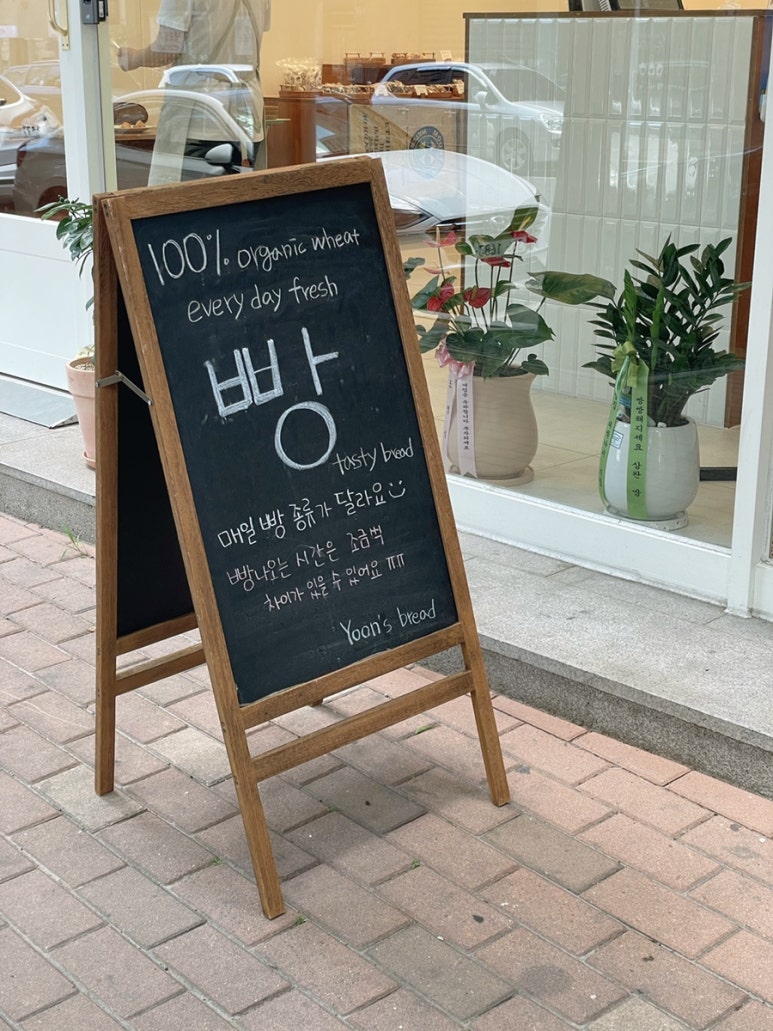 100% organic wheat
every day fresh
빵
tasty bread
매일 빵 종류가 달라요
빵나오는 시간은 조금씩
차이가 있을 수 있어요 ㅠㅠ
Yoon's bread
빵빵해지세요 상판 빵